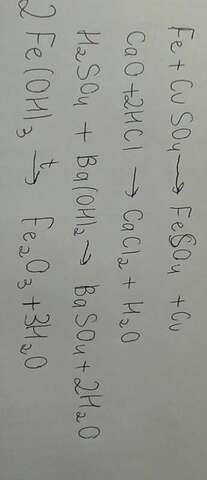 Fe + CuSO₄ ⟶ FeSO₄ + Cu
CaO + 2HCl ⟶ CaCl₂ + H₂O
H₂SO₄ + Ba(OH)₂ ⟶ BaSO₄ + 2H₂O
2Fe(OH)₃ t⟶ Fe₂O₃ + 3H₂O